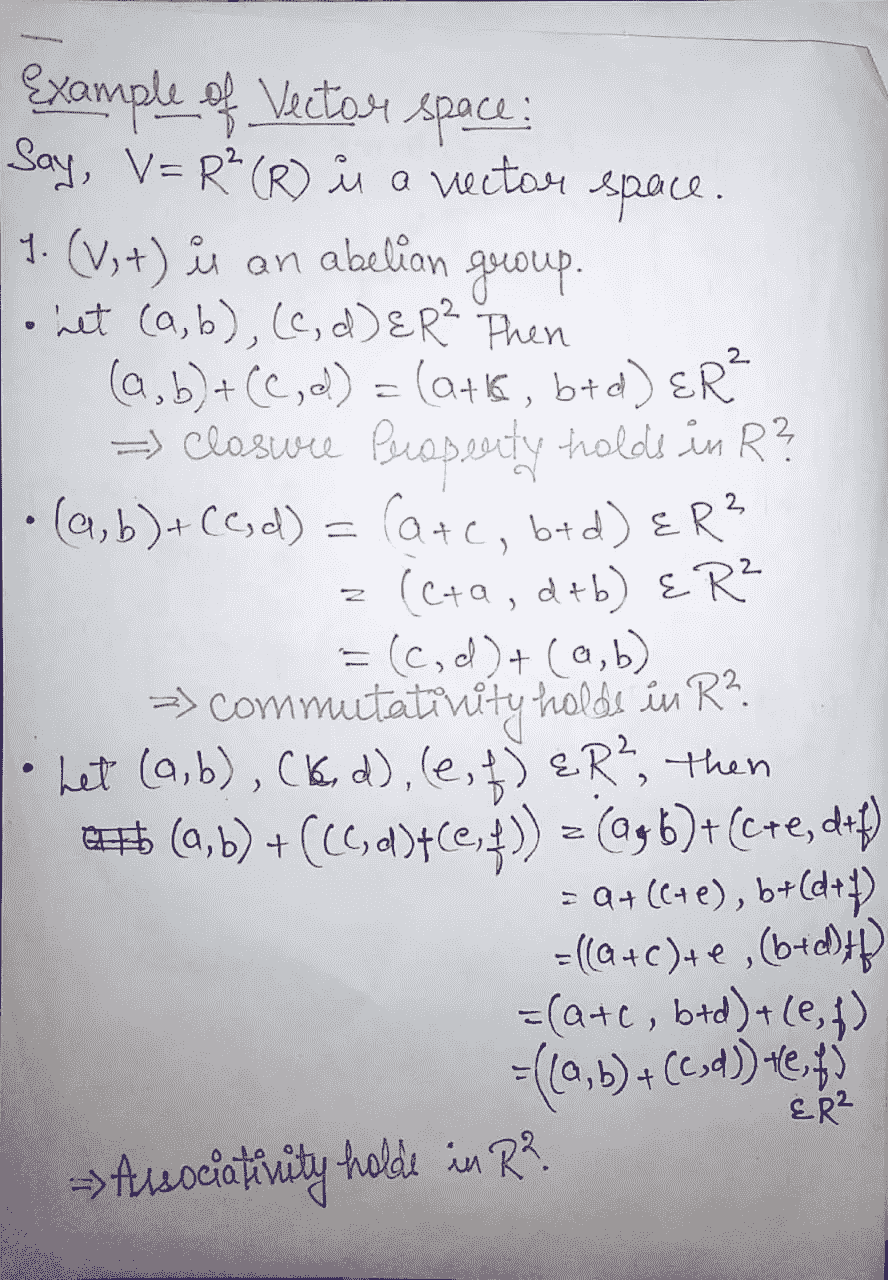 Example of Vector space:
Say, V = R² (R) is a vector space.
1. (V,+) is an abelian group.
• Let (a,b), (c,d) ε R² Then
(a,b)+(c,d) = (a+c, b+d) ε R²
⇒ Closure Property holds in R².
• (a,b)+(c,d) = (a+c, b+d) ε R²
= (c+a, d+b) ε R²
= (c,d)+(a,b)
⇒ commutativity holds in R².
• Let (a,b), (c,d), (e,f) ε R², then
(a,b) + ((c,d)+(e,f)) = (a,b)+(c+e, d+f)
= a+(c+e), b+(d+f)
= ((a+c)+e, (b+d)+f)
= (a+c, b+d)+(e,f)
= ((a,b)+(c,d))+(e,f)
ε R²
⇒ Associativity holds in R².